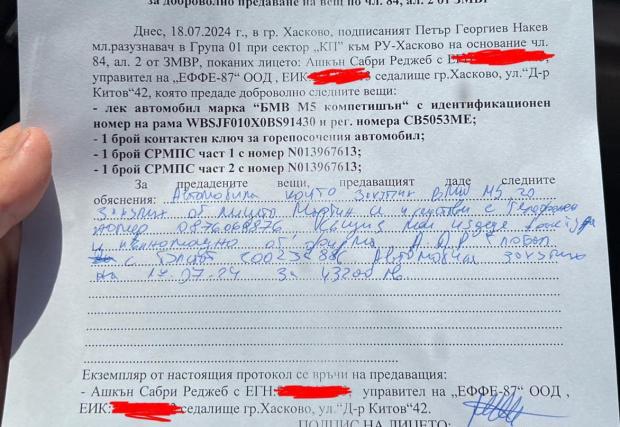 за доброволно предаване на вещ по чл. 84, ал. 2 от ЗМВР
Днес, 18.07.2024 г., в гр. Хасково, подписаният Петър Георгиев Накев
мл.разузнавач в Група 01 при сектор „КП” към РУ-Хасково на основание чл.
84, ал. 2 от ЗМВР, поканих лицето: Ашкън Сабри Реджеб с ЕГН
управител на „ЕФФЕ-87” ООД, ЕИК: седалище гр.Хасково, ул.“Д-р
Китов“42, която предаде доброволно следните вещи:
- лек автомобил марка “БМВ М5 компетишън“ с идентификационен
номер на рама WBSJF010X0BS91430 и рег. номера СВ5053МЕ;
- 1 брой контактен ключ за горепосочения автомобил;
- 1 брой СРМПС част 1 с номер N013967613;
- 1 брой СРМПС част 2 с номер N013967613;
За предадените вещи, предаващият даде следните
обяснения: Автомобила който закупих BMW M5 го
закупих от лицето Мартин с телефонен
номер
и от фирма
с Автомобила закупих
на 17.07.24 за 43200 лв
Екземпляр от настоящия протокол се връчи на предаващия:
- Ашкън Сабри Реджеб с ЕГН: управител на „ЕФФЕ-87” ООД ,
ЕИК: седалище гр.Хасково, ул.“Д-р Китов“42.
ПОДПИС НА ЛИЦЕТО: